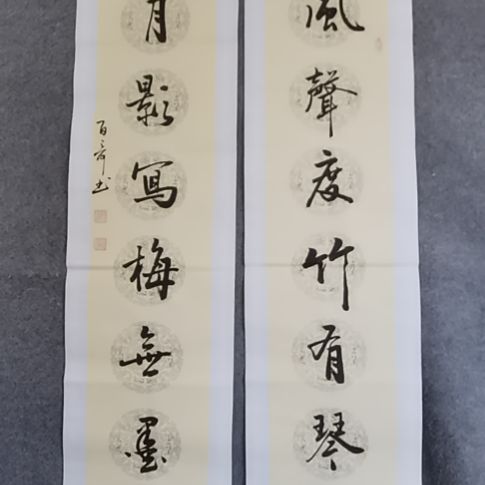 風聲度竹有琴
月影寫梅無墨
百奇书